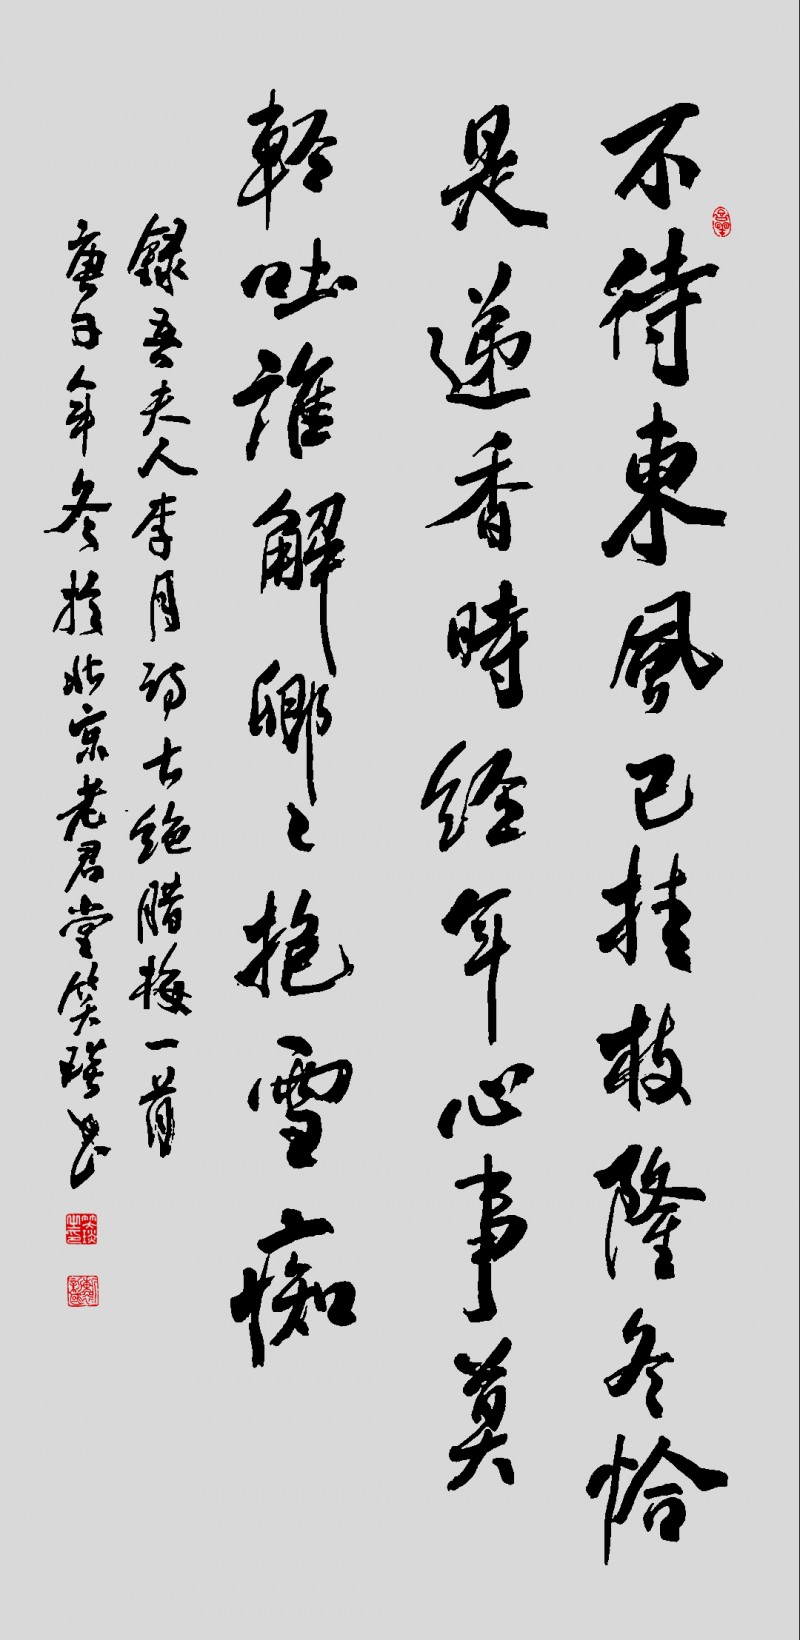 不待東風已挂枝隆冬恰
是递香時经年心事莫
軽吐誰解卿々抱雪痴
錄吾夫人李月诗七绝腊梅一首
庚子年冬於北京老君堂笑书